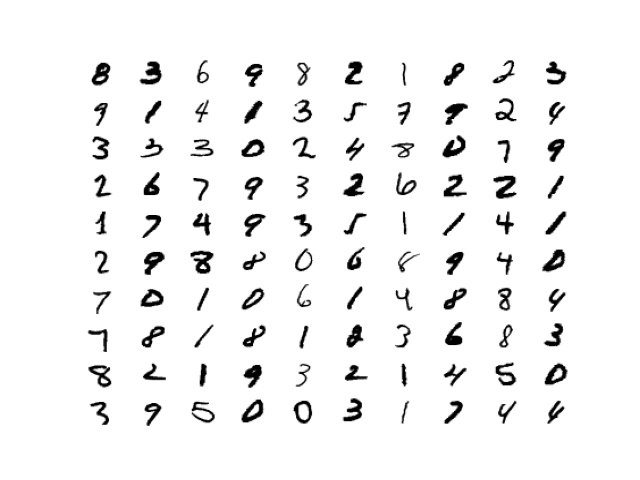 8 3 6 9 8 2 1 8 2 3
9 1 4 1 3 5 7 9 2 4
3 3 3 0 2 4 8 0 7 9
2 6 7 9 3 2 6 2 2 1
1 7 4 9 3 5 1 1 4 1
2 9 8 8 0 6 8 9 4 0
7 0 1 0 6 1 4 8 8 4
7 8 1 8 1 8 3 6 8 3
8 2 1 9 3 2 1 4 5 0
3 9 5 0 0 3 1 7 4 4